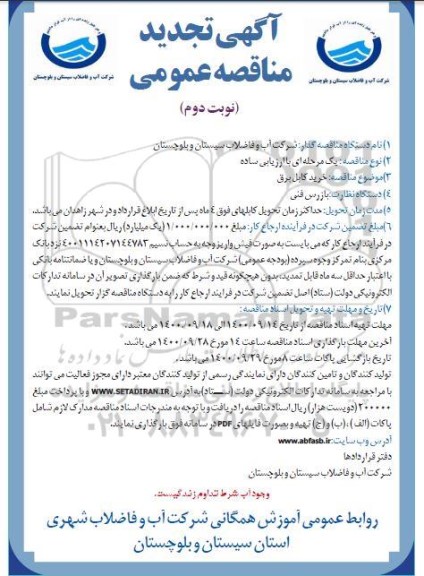 آگهی تجدید
مناقصه عمومی
(نوبت دوم)
شرکت آب و فاضلاب سیستان و بلوچستان
شرکت آب و فاضلاب سیستان و بلوچستان
۱) نام دستگاه مناقصه گذار: شرکت آب و فاضلاب سیستان و بلوچستان
۲) نوع مناقصه: یک مرحله ای با ارزیابی ساده
۳) موضوع مناقصه: خرید کابل برق
۴) دستگاه نظارت: بازرس فنی
۵) مدت زمان تحویل: حداکثر زمان تحویل کابلهای فوق ۴ ماه پس از تاریخ ابلاغ قرارداد و در شهر زاهدان می باشد.
۶) مبلغ تضمین شرکت در فرآیند ارجاع کار: مبلغ ۱/۰۰۰/۰۰۰/۰۰۰ (یک میلیارد) ریال بعنوان تضمین شرکت
در فرآیند ارجاع کار که می بایست به صورت فیش واریز وجه به حساب نسیم ۴۰۰۱۱۱۴۲۰۷۱۴۴۷۸۳ نزد بانک
مرکزی بنام تمرکز وجوه سپرده (بودجه عمومی) شرکت آب و فاضلاب سیستان و بلوچستان و یا ضمانتنامه بانکی
با اعتبار حداقل سه ماه قابل تمدید، بدون هیچگونه قید و شرط که ضمن بارگذاری تصویر آن در سامانه تدارکات
الکترونیکی دولت (ستاد) اصل تضمین شرکت در فرایند ارجاع کار را به دستگاه مناقصه گزار تحویل نمایند.
۷) تاریخ و مهلت تهیه و تحویل اسناد مناقصه:
مهلت تهیه اسناد مناقصه از تاریخ ۱۴۰۰/۰۹/۱۴ الی ۱۴۰۰/۰۹/۱۸ می باشد.
آخرین مهلت بارگذاری اسناد مناقصه ساعت ۱۴ مورخ ۱۴۰۰/۰۹/۲۸ می باشد.
تاریخ بازگشایی پاکات ساعت ۸ مورخ ۱۴۰۰/۰۹/۲۹ می باشد.
تولید کنندگان و تامین کنندگان دارای نمایندگی رسمی از تولید کنندگان معتبر دارای مجوز فعالیت می توانند
با مراجعه به سامانه تدارکات الکترونیکی دولت (ستاد) به آدرس WWW.SETADIRAN.IR و با پرداخت مبلغ
۲۰۰۰۰۰ (دویست هزار) ریال اسناد مناقصه را دریافت و با توجه به مندرجات اسناد مناقصه مدارک لازم شامل
پاکات (الف)، (ب) و (ج) تهیه و بصورت فایلهای PDF در سامانه فوق بارگذاری نمایند.
آدرس وب سایت: www.abfasb.ir
دفتر قراردادها
شرکت آب و فاضلاب سیستان و بلوچستان
وجود آب شرط تداوم زندگیست.
روابط عمومی آموزش همگانی شرکت آب و فاضلاب شهری
استان سیستان و بلوچستان